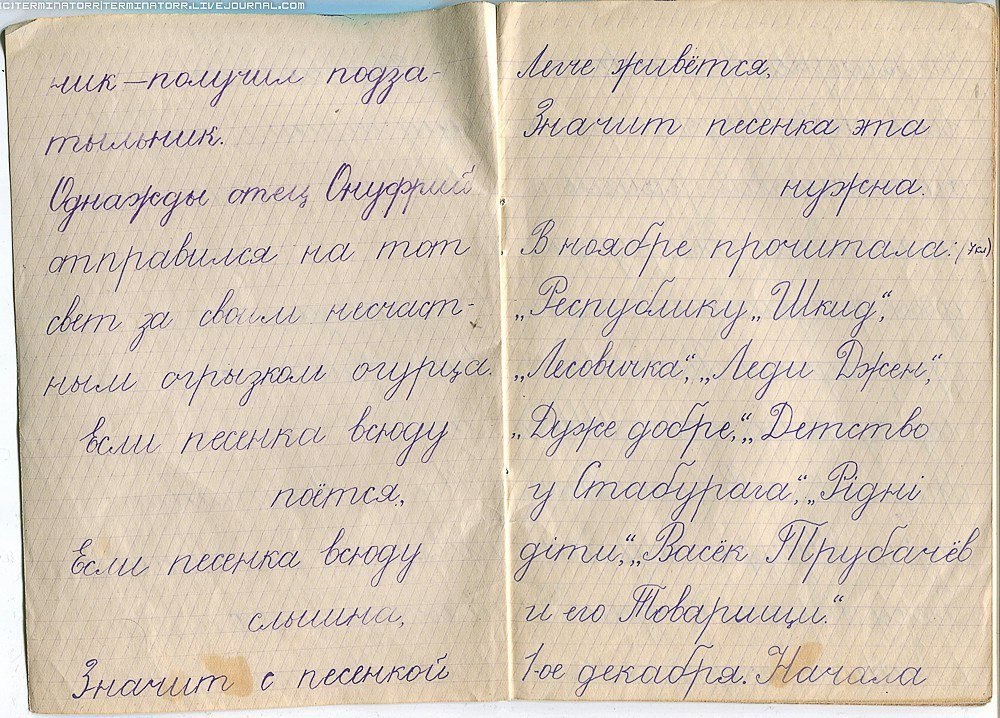 CITERMINATORR|TERMINATORR.LIVEJOURNAL.COM
чик — получил подза-
тыльник.
Однажды отец Онуфрий
отправился на тот
свет за своим несчаст-
ным огрызком огурца.
Если песенка всюду
поётся,
Если песенка всюду
слышна,
Значит с песенкой
Легче живётся,
Значит песенка эта
нужна.
В ноябре прочитала:
„Республику „Шкид“,
„Лесовичка“, „Леди Джен“,
„Дуже добре“, „Детство
у Стабурага“, „Рідні
діти“, „Васёк Трубачёв
и его Товарищи.“
1-ое декабря. Начала